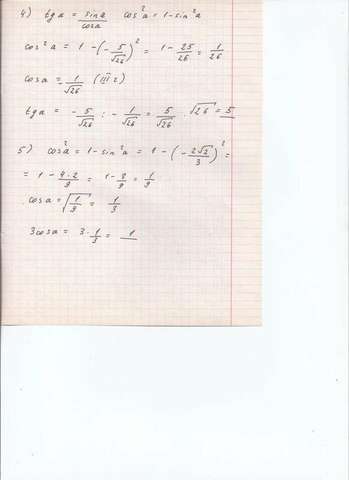 4) tg a = sin a / cos a cos² a = 1 - sin² a
cos² a = 1 - (- 5/√26)² = 1 - 25/26 = 1/26
cos a = - 1/√26 (III z)
tg a = - 5/√26 : - 1/√26 = 5/√26 · √26 = 5
5) cos² a = 1 - sin² a = 1 - (- 2√2/3)² =
= 1 - 4·2/9 = 1 - 8/9 = 1/9
cos a = √1/9 = 1/3
3cos a = 3 · 1/3 = 1